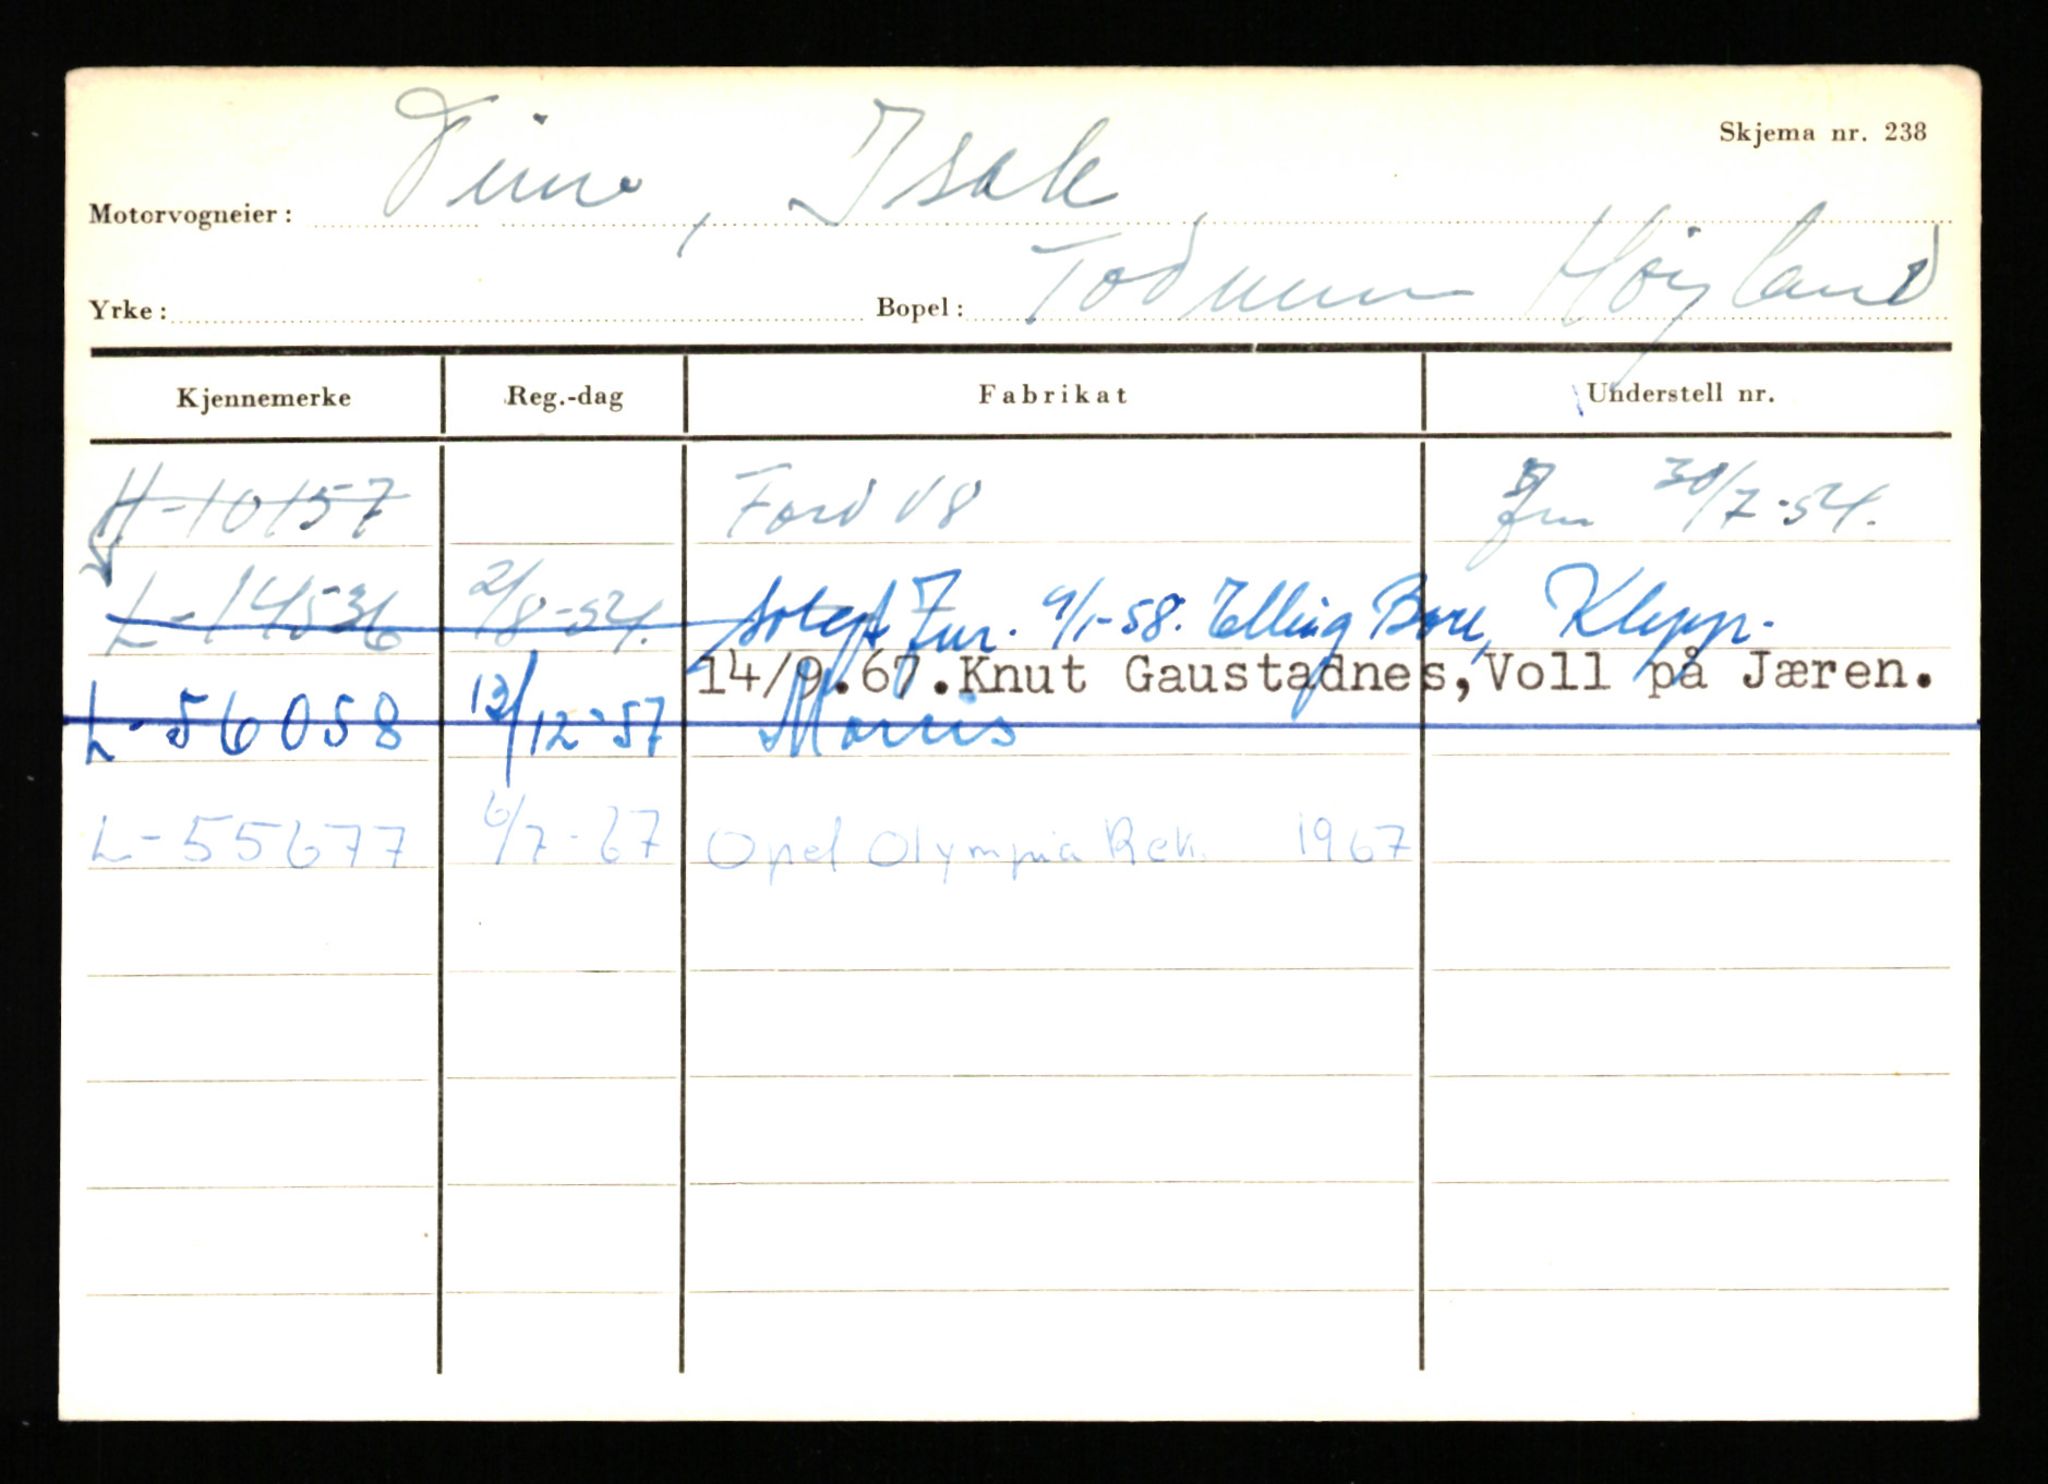 Skjema nr. 238
Motorvogneier: , Isak
Yrke: Bopel: Høyland
Kjennemerke Reg.-dag Fabrikat Understell nr.
H-10157 Ford V8 30/7-54.
L-14536 2/8-54. solgt 9/1-58. Elling Bore, Klepp.
14/9.67.Knut Gaustadnes,Voll på Jæren.
L-56058 13/12-57 Morris
L-55677 6/7-67 Opel Olympia Rek. 1967